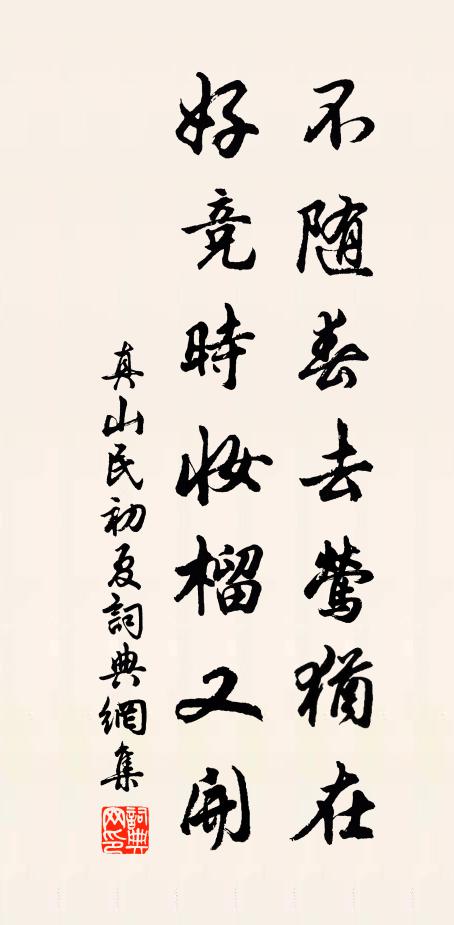 不随春去鶯猶在
好竞時妝榴又開
真山民初夏詞典網集
詞典網印